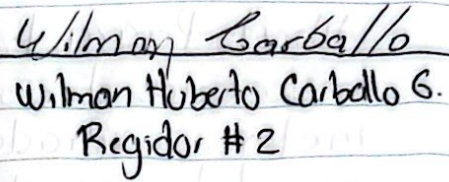 Wilman Carballo
Wilman Huberto Carballo G.
Regidor # 2